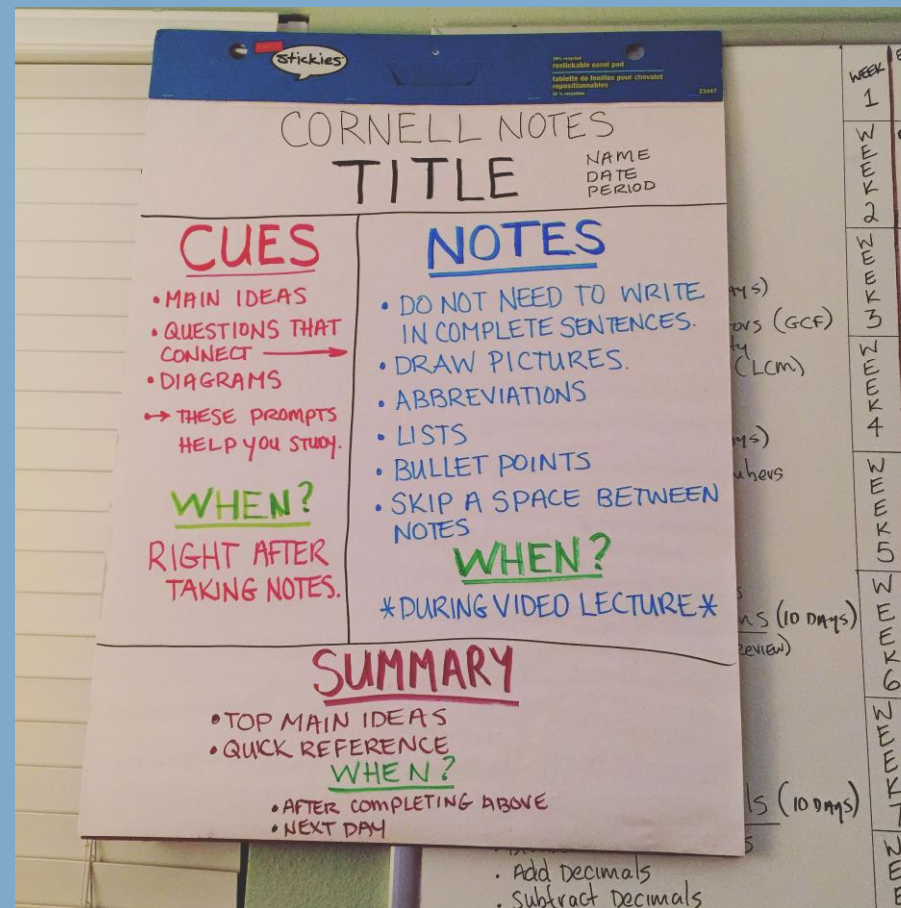 stickies
30% recycled
restickable easel pad
tablette de feuilles pour chevalet
repositionnables
23447
CORNELL NOTES
TITLE
NAME
DATE
PERIOD
CUES
• MAIN IDEAS
• QUESTIONS THAT
CONNECT →
• DIAGRAMS
↦ THESE PROMPTS
HELP YOU STUDY.
WHEN?
RIGHT AFTER
TAKING NOTES.
NOTES
• DO NOT NEED TO WRITE
IN COMPLETE SENTENCES.
• DRAW PICTURES.
• ABBREVIATIONS
• LISTS
• BULLET POINTS
• SKIP A SPACE BETWEEN
NOTES
WHEN?
*DURING VIDEO LECTURE*
SUMMARY
• TOP MAIN IDEAS
• QUICK REFERENCE
WHEN?
• AFTER COMPLETING ABOVE
• NEXT DAY
(GCF)
(LCM)
(10 DAYS)
REVIEW)
(10 DAYS)
• Add Decimals
• Subtract Decimals
WEEK
1
WEEK
2
WEEK
3
WEEK
4
WEEK
5
WEEK
6
WEEK
7